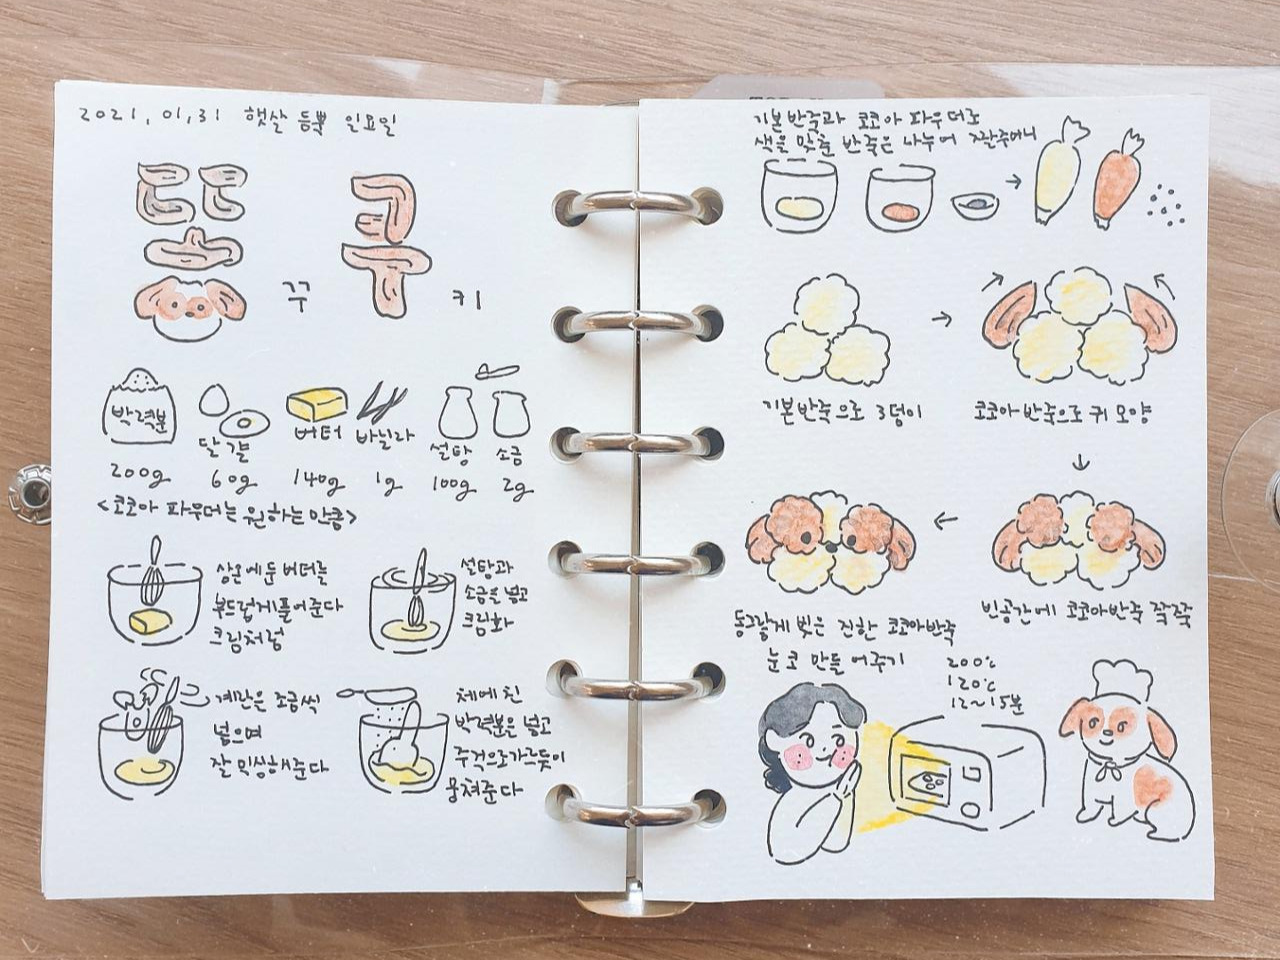 2021, 01, 31 햇살 듬뿍 일요일
꾸 키
박력분
달걀
버터
바닐라
설탕
소금
200g 60g 140g 1g 100g 2g
<코코아 파우더는 원하는 만큼>
상온에 둔 버터를
부드럽게 풀어준다
크림처럼
설탕과
소금을 넣고
크림화
계란은 조금씩
넣으며
잘 믹싱해준다
체에 친
박력분은 넣고
주걱으로 가르듯이
뭉쳐준다
기본반죽과 코코아 파우더로
색을 맞춘 반죽은 나누어 짤주머니
기본반죽으로 3덩이
코코아반죽으로 귀 모양
빈공간에 코코아반죽 쫙쫙
동그랗게 빚은 진한 코코아반죽
눈 코 만들어주기
200℃
120℃
12~15분